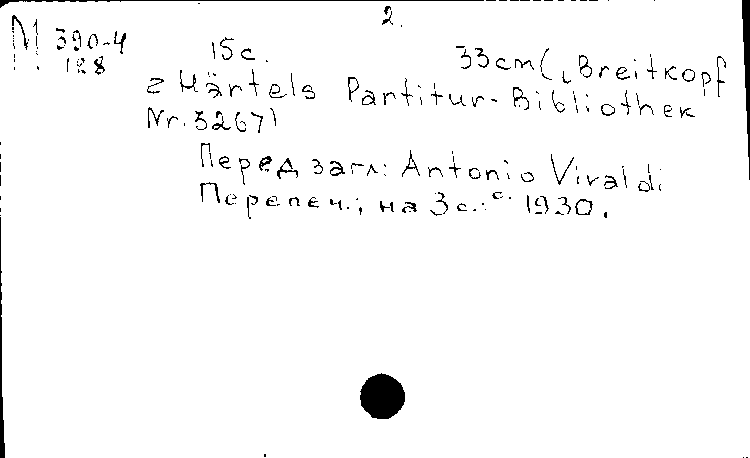 2.
М 390-4
188
15 с. 33 cm (Breitkopf
& Härtels Partitur-Bibliothek
Nr. 3267)
Перед загл: Antonio Vivaldi
Перепеч.; на 3 с.: с. 1930.